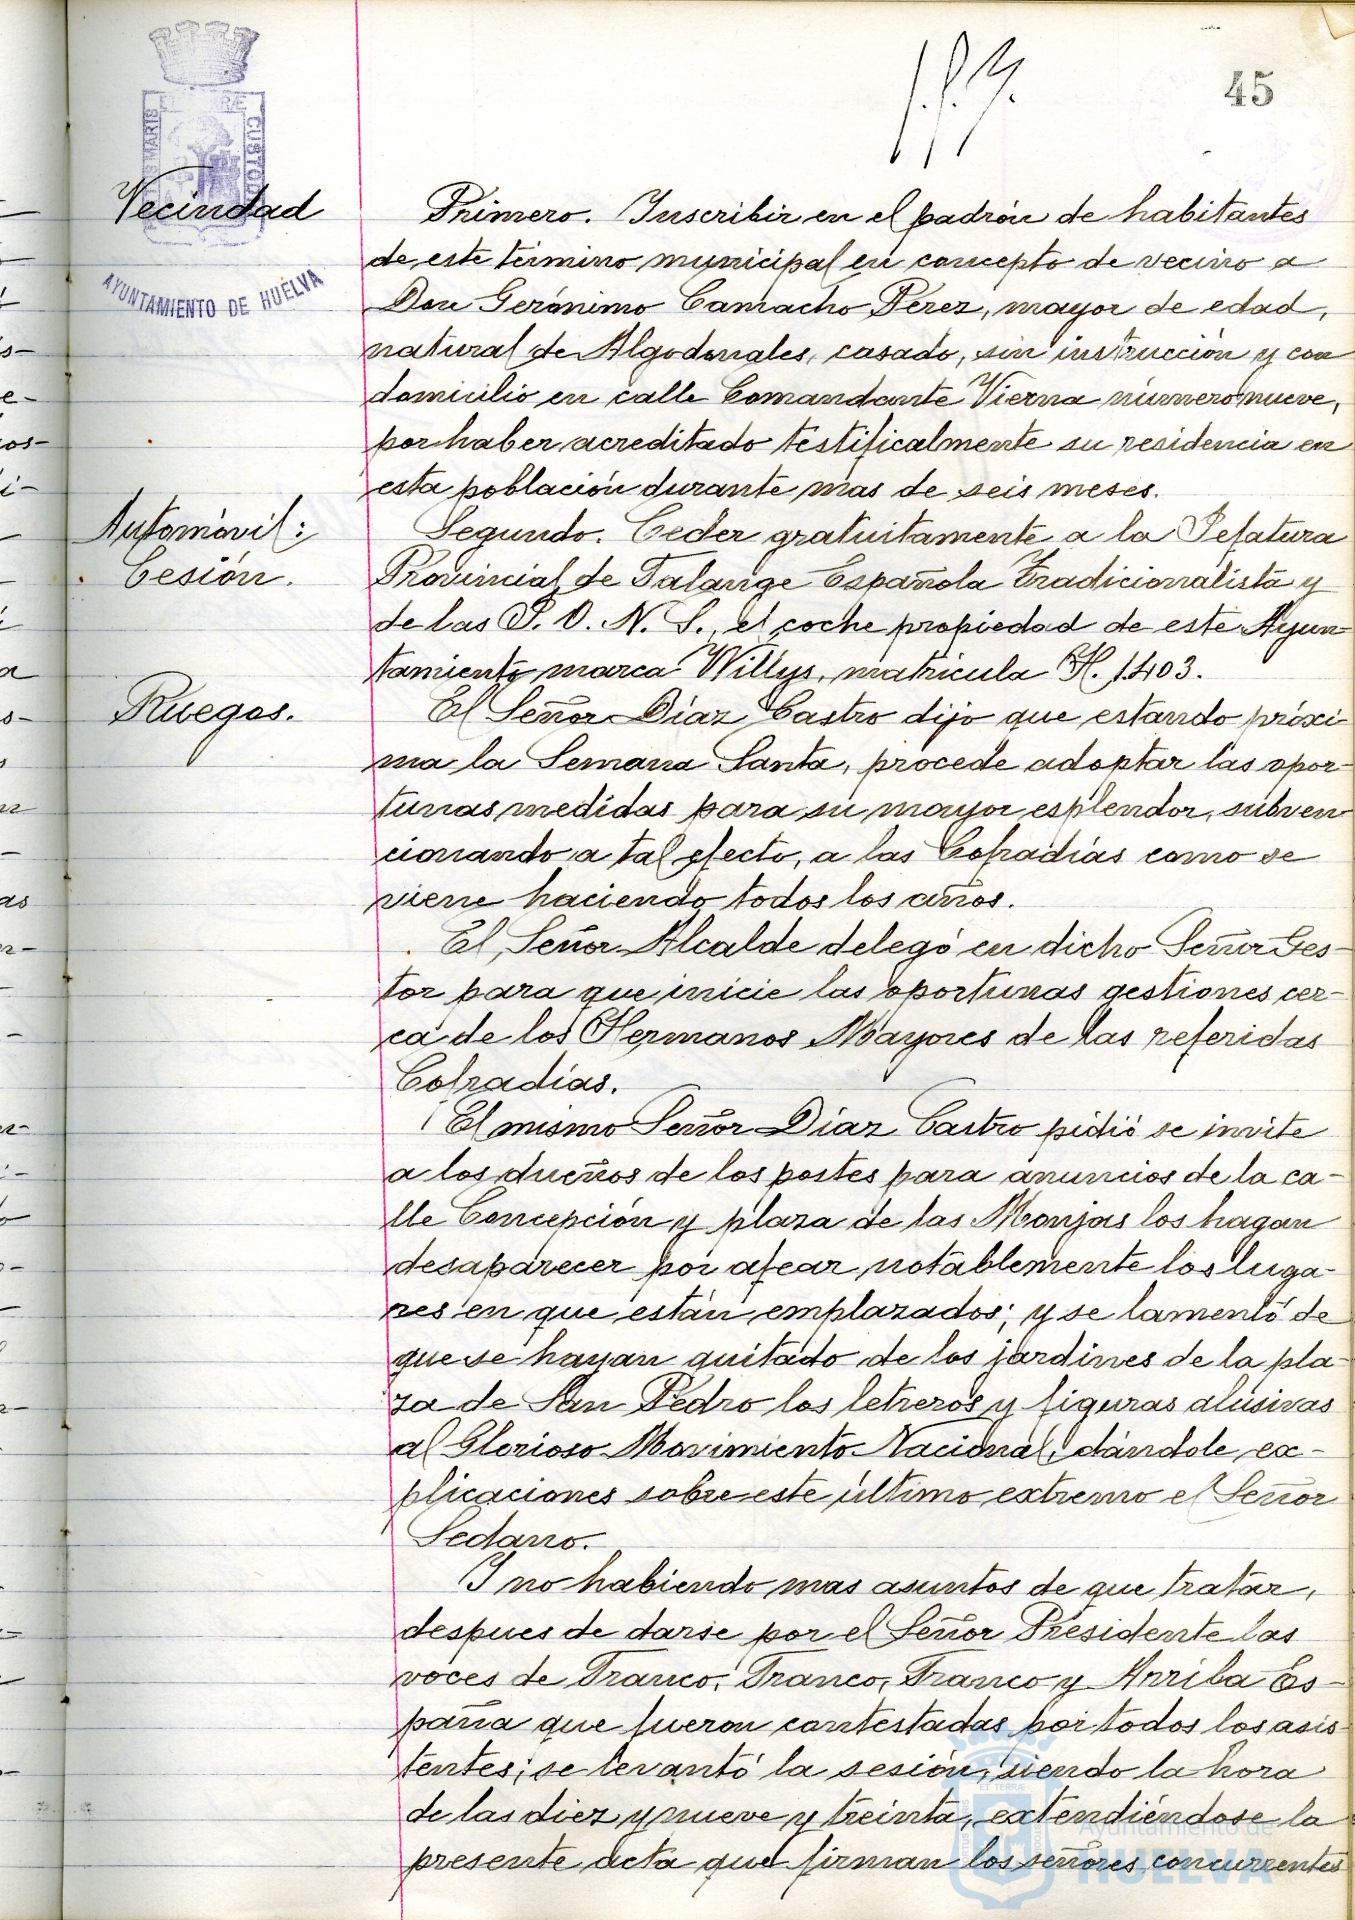 45
Vecindad
AYUNTAMIENTO DE HUELVA
Primero. Inscribir en el padrón de habitantes
de este término municipal en concepto de vecino a
Don Gerónimo Camacho Pérez, mayor de edad,
natural de Algodonales, casado, sin instrucción y con
domicilio en calle Comandante Vierna número nueve,
por haber acreditado testificalmente su residencia en
esta población durante mas de seis meses.
Automóvil:
Cesión.
Segundo. Ceder gratuitamente a la Jefatura
Provincial de Falange Española Tradicionalista y
de las J. O. N. S., el coche propiedad de este Ayun-
tamiento marca Willys, matrícula H. 1403.
Ruegos.
El Señor Díaz Castro dijo que estando próxi-
ma la Semana Santa, procede adoptar las opor-
tunas medidas para su mayor esplendor, subven-
cionando a tal efecto, a las Cofradías como se
viene haciendo todos los años.
El Señor Alcalde delegó en dicho Señor Ges-
tor para que inicie las oportunas gestiones cer-
ca de los Hermanos Mayores de las referidas
Cofradías.
El mismo Señor Díaz Castro pidió se invite
a los dueños de los postes para anuncios de la ca-
lle Concepción y plaza de las Monjas los hagan
desaparecer por afear notablemente los luga-
res en que están emplazados; y se lamentó de
que se hayan quitado de los jardines de la pla-
za de San Pedro los letreros y figuras alusivas
al Glorioso Movimiento Nacional, dándole ex-
plicaciones sobre este último extremo el Señor
Sedano.
Y no habiendo mas asuntos de que tratar,
despues de darse por el Señor Presidente las
voces de Franco, Franco, Franco y Arriba Es-
paña que fueron contestadas por todos los asis-
tentes; se levantó la sesión, siendo la hora
de las diez y nueve y treinta, extendiéndose la
presente acta que firman los señores concurrentes
Ayuntamiento de
HUELVA